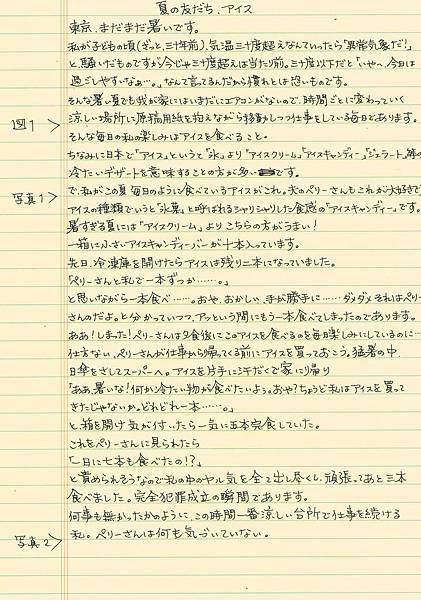 夏の友だち、アイス
東京、まだまだ暑いです。
私が子どもの頃(ざっと、三十年前)、気温三十度超えなんていったら「異常気象だ!」
と、騒いだものですが今じゃ三十度超えは当たり前。三十度以下だと「いや〜、今日は
過ごしやすいなぁ…。」なんて言ってるんだから慣れとは恐いものです。
そんな暑い夏でも我が家にはいまだにエアコンがないので、時間ごとに変わっていく
図1 涼しい場所に原稿用紙を抱えながら移動しつつ仕事をしている毎日であります。
そんな毎日の私の楽しみはアイスを食べること。
ちなみに日本で「アイス」というと「氷」より「アイスクリーム」「アイスキャンディー」「ジェラート」等の
冷たいデザートを意味することの方が多いです。
写真1 で、私がこの夏毎日のように食べているアイスがこれ。夫のペリーさんもこれが大好きで
アイスの種類でいうと「氷菓」と呼ばれるシャリシャリした食感の「アイスキャンディー」です。
暑すぎる夏には「アイスクリーム」よりこちらの方がうまい!
一箱に小さいアイスキャンディーバーが十本入っています。
先日、冷凍庫を開けたらアイスは残り二本になっていました。
「ペリーさんと私で一本ずつか……。」
と思いながら一本食べ……。おや、おかしい、手が勝手に……ダメダメそれはペリー
さんのだよ。と分かっていつつ、アッという間にもう一本食べてしまったのであります。
ああ!しまった!ペリーさんは夕食後にこのアイスを食べるのを毎日楽しみにしているのに…
仕方ない、ペリーさんが仕事から帰ってくる前にアイスを買っておこう。猛暑の中、
日傘をさしてスーパーへ。アイスを片手に汗だくで家に帰り
「ああ、暑いな!何か冷たい物が食べたいよう。おや?ちょうど私はアイスを買って
きたじゃないか。どれどれ一本……。」
と、箱を開け気が付いたら一気に五本完食していた。
これをペリーさんに見られたら
「一日に七本も食べたの!?」
と責められそうなので私の中のヤル気を全て出し尽くし、頑張ってあと三本
食べました。完全犯罪成立の瞬間であります。
何事も無かったかのように、この時間一番涼しい台所で仕事を続ける
写真2 私。ペリーさんは何も気づいていない。